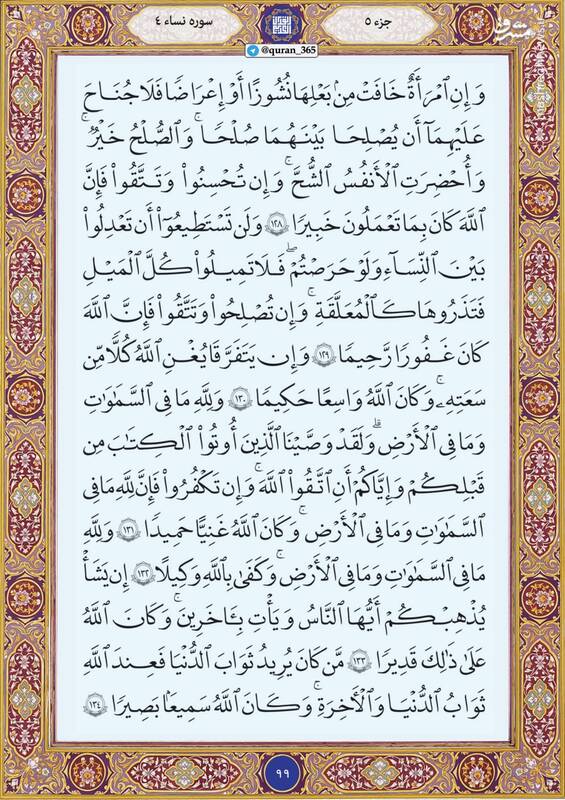 جزء ٥
سوره نساء ٤
مشرق
@quran_365
وَإِنِ ٱمْرَأَةٌ خَافَتْ مِنۢ بَعْلِهَا نُشُوزًا أَوْ إِعْرَاضًا فَلَا جُنَاحَ
عَلَيْهِمَآ أَن يُصْلِحَا بَيْنَهُمَا صُلْحًا ۚ وَٱلصُّلْحُ خَيْرٌ ۗ
وَأُحْضِرَتِ ٱلْأَنفُسُ ٱلشُّحَّ ۚ وَإِن تُحْسِنُوا۟ وَتَتَّقُوا۟ فَإِنَّ
ٱللَّهَ كَانَ بِمَا تَعْمَلُونَ خَبِيرًا ١٢٨ وَلَن تَسْتَطِيعُوٓا۟ أَن تَعْدِلُوا۟
بَيْنَ ٱلنِّسَآءِ وَلَوْ حَرَصْتُمْ ۖ فَلَا تَمِيلُوا۟ كُلَّ ٱلْمَيْلِ
فَتَذَرُوهَا كَٱلْمُعَلَّقَةِ ۚ وَإِن تُصْلِحُوا۟ وَتَتَّقُوا۟ فَإِنَّ ٱللَّهَ
كَانَ غَفُورًا رَّحِيمًا ١٢٩ وَإِن يَتَفَرَّقَا يُغْنِ ٱللَّهُ كُلًّا مِّن
سَعَتِهِۦ ۚ وَكَانَ ٱللَّهُ وَٰسِعًا حَكِيمًا ١٣٠ وَلِلَّهِ مَا فِى ٱلسَّمَٰوَٰتِ
وَمَا فِى ٱلْأَرْضِ ۗ وَلَقَدْ وَصَّيْنَا ٱلَّذِينَ أُوتُوا۟ ٱلْكِتَٰبَ مِن
قَبْلِكُمْ وَإِيَّاكُمْ أَنِ ٱتَّقُوا۟ ٱللَّهَ ۚ وَإِن تَكْفُرُوا۟ فَإِنَّ لِلَّهِ مَا فِى
ٱلسَّمَٰوَٰتِ وَمَا فِى ٱلْأَرْضِ ۚ وَكَانَ ٱللَّهُ غَنِيًّا حَمِيدًا ١٣١ وَلِلَّهِ
مَا فِى ٱلسَّمَٰوَٰتِ وَمَا فِى ٱلْأَرْضِ ۚ وَكَفَىٰ بِٱللَّهِ وَكِيلًا ١٣٢ إِن يَشَأْ
يُذْهِبْكُمْ أَيُّهَا ٱلنَّاسُ وَيَأْتِ بِـَٔاخَرِينَ ۚ وَكَانَ ٱللَّهُ
عَلَىٰ ذَٰلِكَ قَدِيرًا ١٣٣ مَّن كَانَ يُرِيدُ ثَوَابَ ٱلدُّنْيَا فَعِندَ ٱللَّهِ
ثَوَابُ ٱلدُّنْيَا وَٱلْـَٔاخِرَةِ ۚ وَكَانَ ٱللَّهُ سَمِيعًۢا بَصِيرًا ١٣٤
٩٩